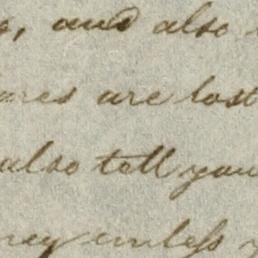 and also
are lost
also tell you
unless